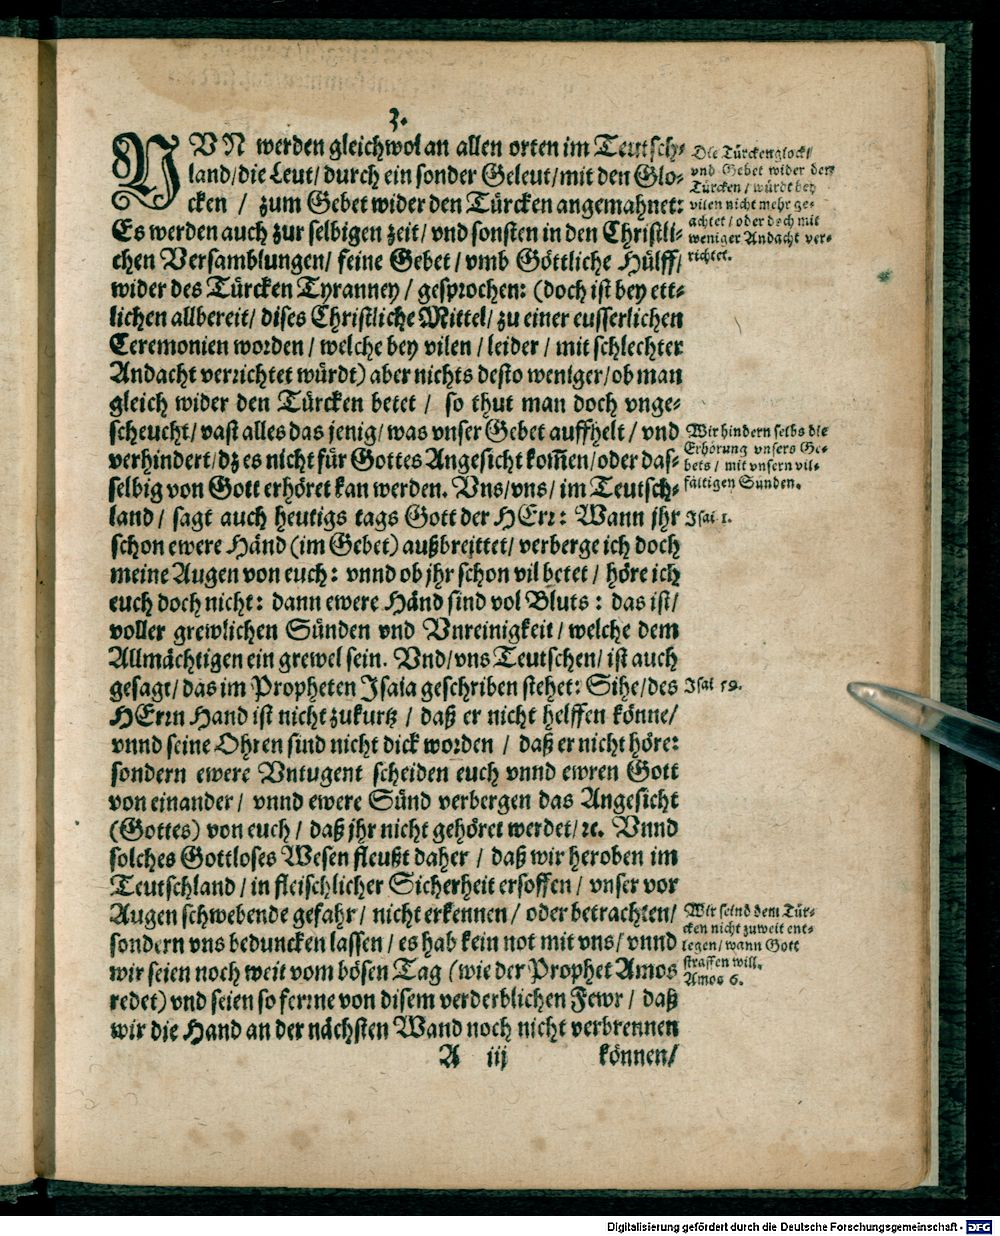 3.
NUN werden gleichwol an allen orten im Teutsch⸗
land/die Leut/durch ein sonder Geleut/mit den Glo⸗
cken / zum Gebet wider den Türcken angemahnet:
Es werden auch zur selbigen zeit/ vnd sonsten in den Christli⸗
chen Versamblungen/ feine Gebet/ vmb Göttliche Hülff/
wider des Türcken Tyranney / gesprochen: (doch ist bey ett⸗
lichen allbereit/ dises Christliche Mittel/ zu einer eusserlichen
Ceremonien worden / welche bey vilen / leider / mit schlechter
Andacht verrichtet würdt) aber nichts desto weniger/ob man
gleich wider den Türcken betet / so thut man doch vnge⸗
scheucht/ vast alles das jenig/ was vnser Gebet auffhelt / vnd
verhindert/dz es nicht für Gottes Angesicht kom̃en/oder das⸗
selbig von Gott erhöret kan werden. Vns/vns/ im Teutsch⸗
land/ sagt auch heutigs tags Gott der HErr: Wann jhr
schon ewere Händ (im Gebet) außbreittet/ verberge ich doch
meine Augen von euch: vnnd ob jhr schon vil betet / höre ich
euch doch nicht: dann ewere Händ sind vol Bluts : das ist/
voller grewlichen Sünden vnd Vnreinigkeit/ welche dem
Allmächtigen ein grewel sein. Vnd/vns Teutschen/ ist auch
gesagt/ das im Propheten Isaia geschriben stehet: Sihe/des
HErrn Hand ist nicht zukurtz / daß er nicht helffen könne/
vnnd seine Ohren sind nicht dick worden / daß er nicht höre:
sondern ewere Vntugent scheiden euch vnnd ewren Gott
von einander/ vnnd ewere Sünd verbergen das Angesicht
(Gottes) von euch / daß jhr nicht gehöret werdet/ ꝛc. Vnnd
solches Gottloses Wesen fleußt daher / daß wir heroben im
Teutschland / in fleischlicher Sicherheit ersoffen / vnser vor
Augen schwebende gefahr / nicht erkennen / oder betrachten/
sondern vns beduncken lassen / es hab kein not mit vns/ vnnd
wir seien noch weit vom bösen Tag (wie der Prophet Amos
redet) vnd seien so ferrne von disem verderblichen Fewr / daß
wir die Hand an der nächsten Wand noch nicht verbrennen
A iij können/
Die Türckenglock/
vnd Gebet wider den
Türcken / würdt bey
vilen nicht mehr ge⸗
achtet / oder doch mit
weniger Andacht ver⸗
richtet.
Wir hindern selbs die
Erhörung vnsers Ge⸗
bets / mit vnsern vil⸗
fältigen Sünden.
Isai 1.
Isai 59.
Wir seind dem Tür⸗
cken nicht zuweit ent⸗
legen/ wann Gott
straffen will.
Amos 6.
Digitalisierung gefördert durch die Deutsche Forschungsgemeinschaft - DFG